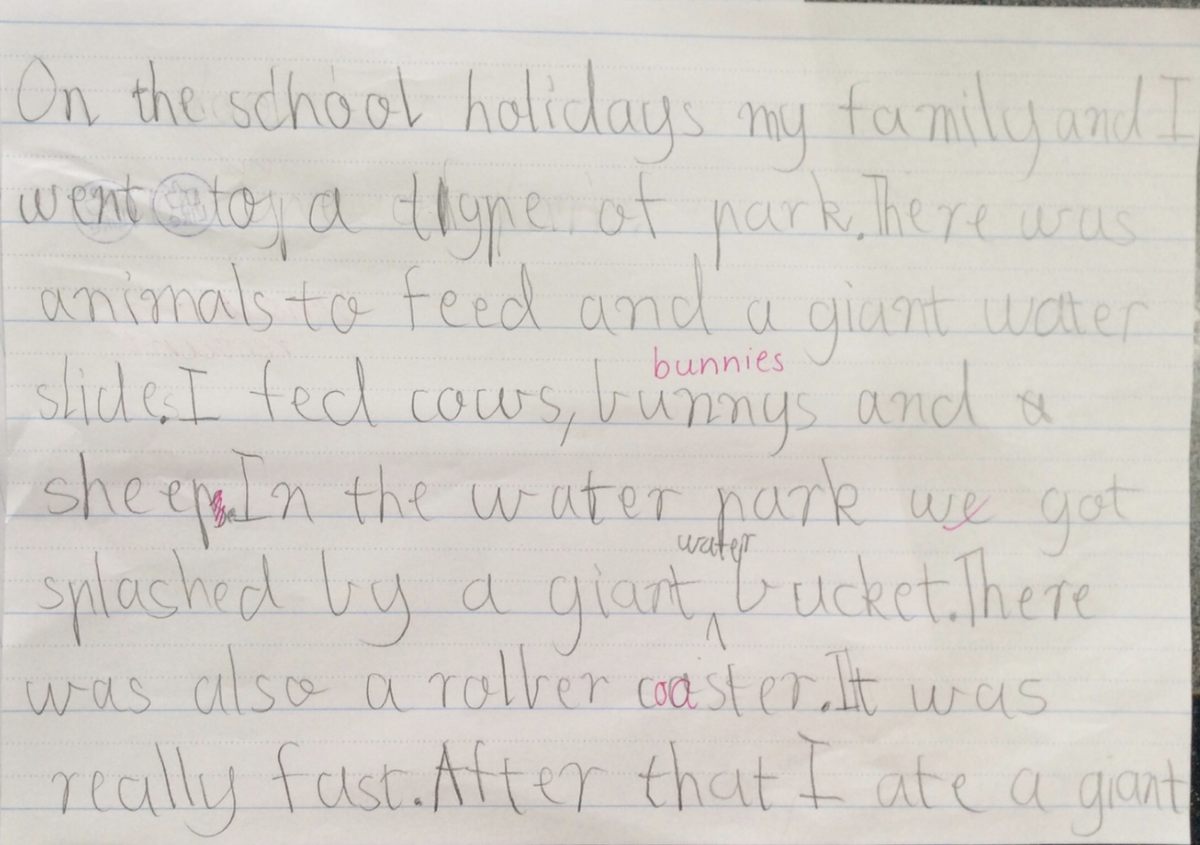 On the school holidays my family and I
went to a type of park. There was
animals to feed and a giant water
bunnies
slide. I fed cows, bunnys and a
sheep. In the water park we got
water
splashed by a giant ^ bucket. There
was also a roller coaster. It was
really fast. After that I ate a giant